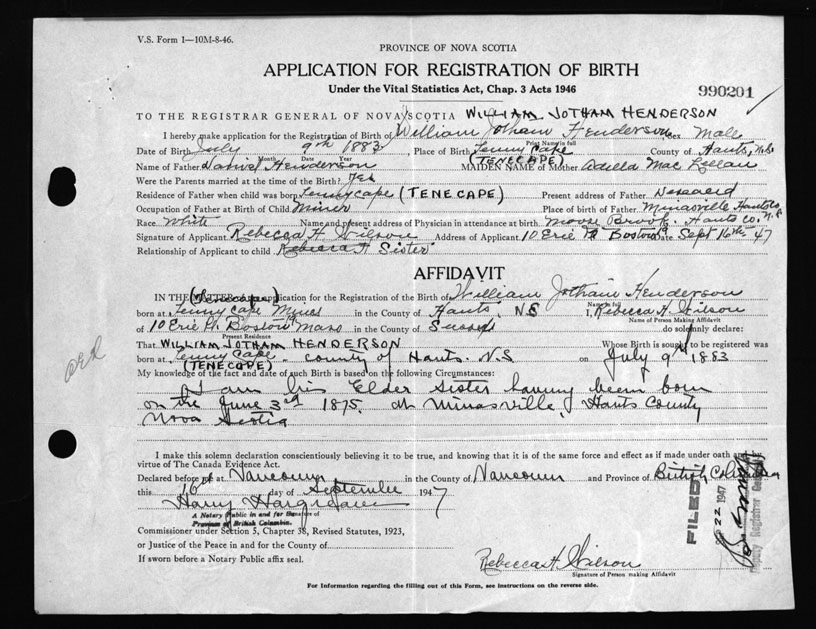 V.S. Form 1—10M-8-46.
PROVINCE OF NOVA SCOTIA
APPLICATION FOR REGISTRATION OF BIRTH
Under the Vital Statistics Act, Chap. 3 Acts 1946
990201
TO THE REGISTRAR GENERAL OF NOVA SCOTIA WILLIAM JOTHAM HENDERSON
I hereby make application for the Registration of Birth of William Jotham Henderson Sex Male
Print Name in full
Date of Birth July 9th 1883 Place of Birth Tenny Cape County of Hants, N.S.
Month Date Year (TENECAPE)
Name of Father Daniel Henderson MAIDEN NAME of Mother Adella Mac Lellan
Were the Parents married at the time of the Birth? Yes
Residence of Father when child was born Tennycape (TENECAPE) Present address of Father Deceased
Occupation of Father at Birth of Child Miner Place of birth of Father Minasville Hants Co
Race White Name and present address of Physician in attendance at birth Moose Brook, Hants Co, N.S.
Signature of Applicant Rebecca H Wilson Address of Applicant 10 Erie St Boston Date Sept 16th 47
Relationship of Applicant to child Rebecca H Sister
AFFIDAVIT
IN THE MATTER of the application for the Registration of the Birth of William Jotham Henderson
(Tenecape) Name in full
born at Tenny Cape Mines in the County of Hants, NS I, Rebecca H Wilson
Name of Person Making Affidavit
of 10 Erie St. Boston Mass in the County of do solemnly declare:
Present Residence
That WILLIAM JOTHAM HENDERSON Whose Birth is sought to be registered was
born at Tenny Cape - county of Hants. N.S on July 9th 1883
(TENECAPE)
My knowledge of the fact and date of such Birth is based on the following Circumstances:
I am his Elder Sister having been born
on the June 3rd 1875. at Minasville, Hants County
Nova Scotia
I make this solemn declaration conscientiously believing it to be true, and knowing that it is of the same force and effect as if made under oath and by
virtue of The Canada Evidence Act.
Declared before me at Vancouver in the County of Vancouver and Province of British Columbia
this 16th day of September 1947
Harry Hargreaves
A Notary Public in and for the
Province of British Columbia.
Commissioner under Section 5, Chapter 38, Revised Statutes, 1923,
or Justice of the Peace in and for the County of
If sworn before a Notary Public affix seal.
Rebecca H. Wilson
Signature of Person making Affidavit
For Information regarding the filling out of this Form, see instructions on the reverse side.
FILED
22 1947
Deputy Registrar